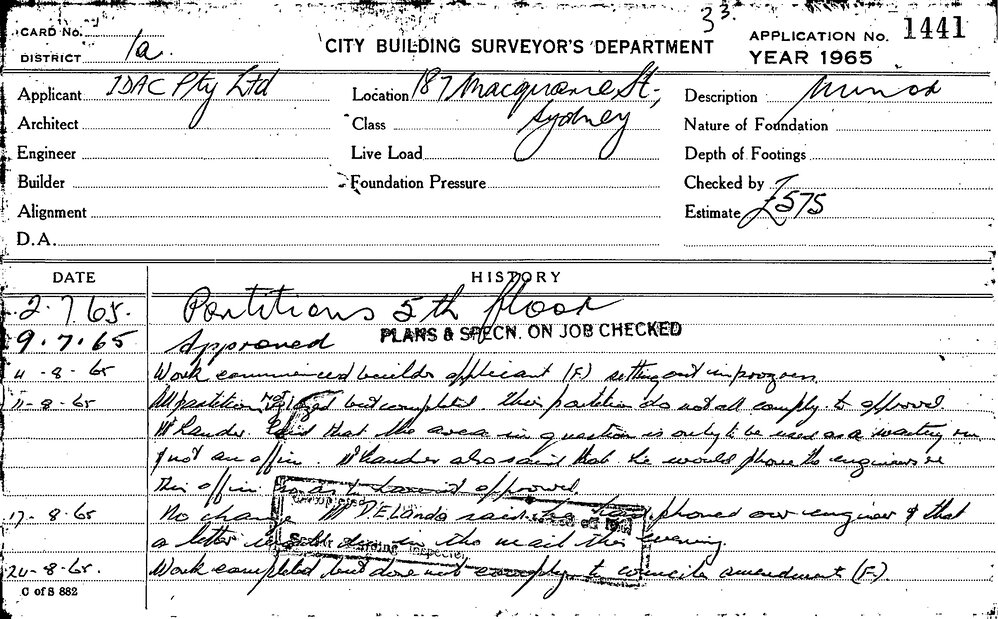 33.
CARD No.
DISTRICT 1a.
CITY BUILDING SURVEYOR'S DEPARTMENT
APPLICATION No. 1441
YEAR 1965
Applicant IDAC Pty Ltd
Location 187 Macquarie St.,
Sydney
Description Minor
Architect
Class
Nature of Foundation
Engineer
Live Load
Depth of Footings
Builder
Foundation Pressure
Checked by
Alignment
Estimate £575
D.A.
DATE HISTORY
2.7.65. Partitions 5th floor
9.7.65 Approved PLANS & SPECN. ON JOB CHECKED
4-8-65 Work commenced builder applicant (F.) setting out in progress.
11-8-65 All partition but completed. This partition do not all comply to approval.
said that the area in question is only to be used as a waiting rm
& not an office. also said that he would phone the engineers re
this office so as to approval.
17-8-65 No change Mr said he had phoned our engineer & that
a letter in the mail this evening.
20-8-65. Work completed but does not comply to councils amendment (F.)
C of S 882